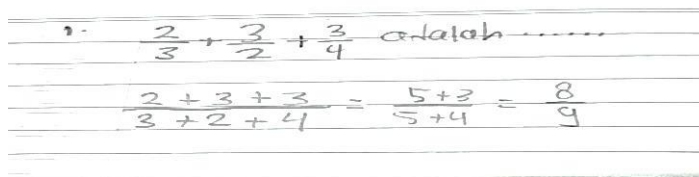 1. 2/3 + 3/2 + 3/4 adalah .......
2 + 3 + 3 / 3 + 2 + 4 = 5+3 / 5+4 = 8/9